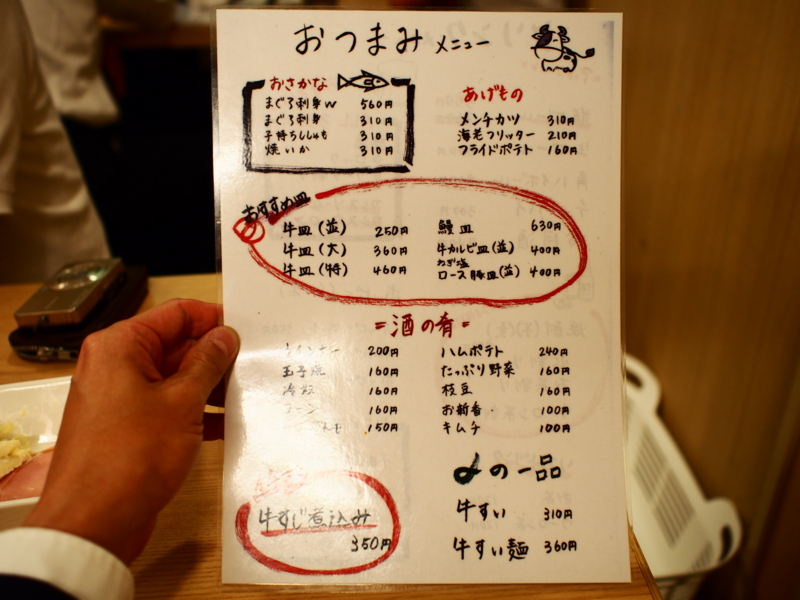 おつまみメニュー
おさかな
まぐろ刺身W 560円
まぐろ刺身 310円
子持ちししゃも 310円
焼いか 310円
あげもの
メンチカツ 310円
海老フリッター 210円
フライドポテト 160円
おすすめ皿
牛皿(並) 250円
牛皿(大) 360円
牛皿(特) 460円
鰻皿 630円
牛カルビ皿(並) 400円
ねぎ塩
ロース豚皿(並) 400円
=酒の肴=
ウインナー 200円
玉子焼 160円
冷奴 160円
コーン 160円
150円
ハムポテト 240円
たっぷり野菜 160円
枝豆 160円
お新香 100円
キムチ 100円
牛すじ煮込み
350円
の一品
牛すい 310円
牛すい麺 360円